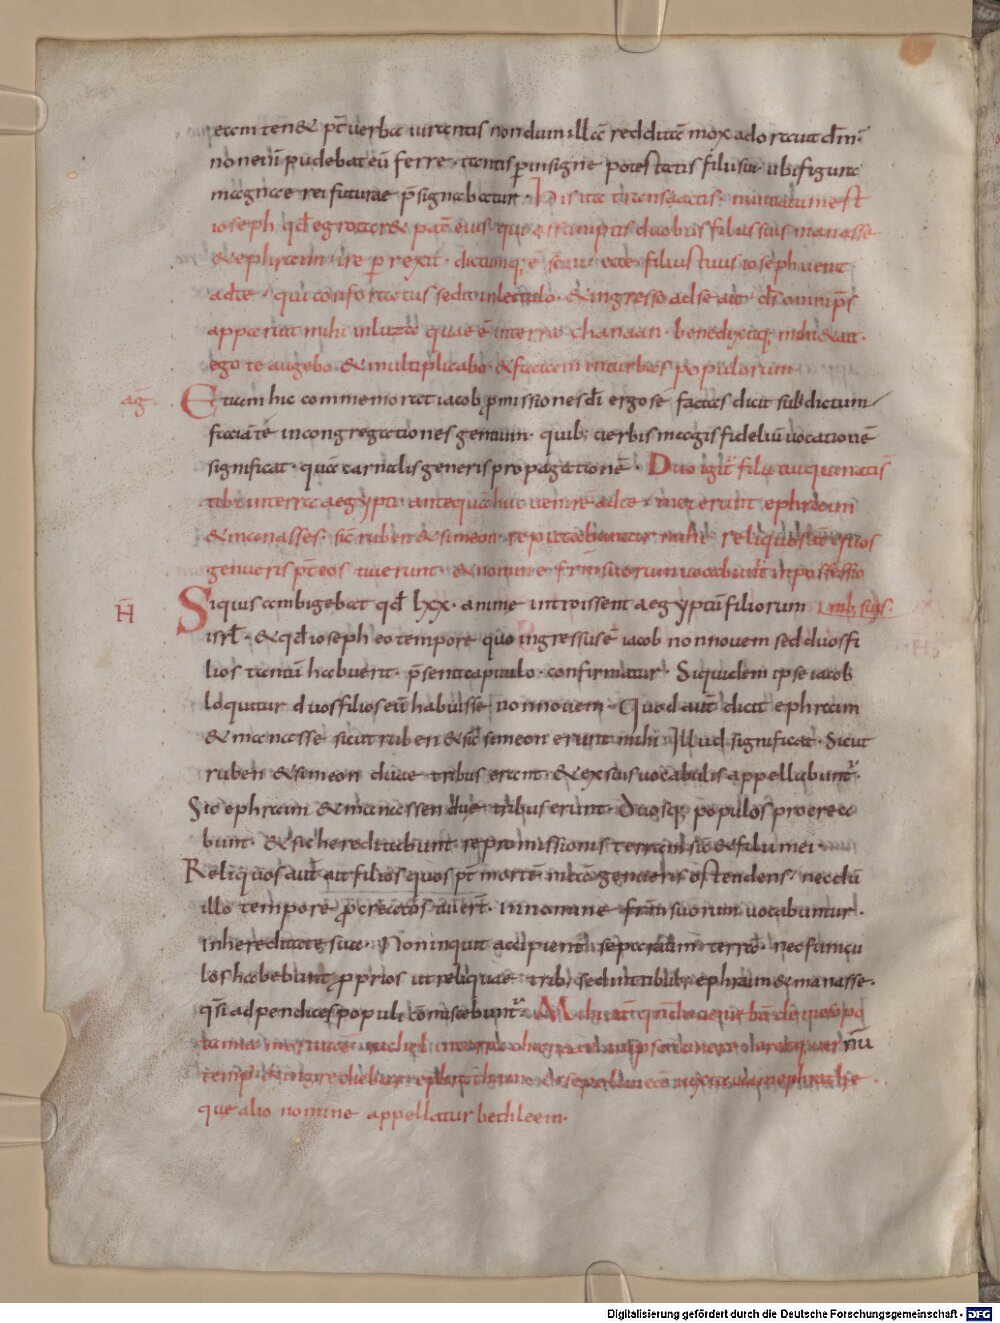 etem ten& pt̄ verba iurantis nondum illā redditā mox adoravit dn̄m·
non eni pudebat eū ferre· tantisp̄ insigne potestatis filii sui· ubi figura
magnae rei futurae p̄signabatur· His ita transactis· nuntiatum est
ioseph qd̄ egrotar& pat̄ eius· qui assumptis duobus filiis suis manasse
& ephraim· ire perrexit· dictumq; ē seni· ecce filius tuus ioseph venit
ad te· qui confortatus sedit in lectulo· & ingresso ad se ait· ds̄ omnip̄s
apparuit mihi in luza quae ē in terra chanaan· benedixitq; mihi & ait·
ego te augebo & multiplicabo· & faciam in turbas populorum
aḡ· Etiam hic commemorat iacob p̄missiones dī erga se factas dicit sibi dictum
faciā te in congregationes gentium· quib; verbis magis fideliū vocationē
significat· quā carnalis generis propagationē· Duo igit̄ filii tui qui nati s̄
tibi in terra aegypti· antequā huc venirē ad te· mei erunt ephraim
& manasses· sic ruben & simeon· reputabuntur mihi· reliquos aū quos
genueris pt̄ eos tui erunt· & nomine frm̄ suorum vocabunt̄ in possessio
H̄ Siquis ambigebat qd̄ lxx· anime introissent aegyptū filiorum nib; suis·
isrl̄· & qd̄ ioseph eo tempore quo ingressus ē iacob non novem sed duos fi
lios tantū habuerit· p̄senti capitulo· confirmatur· Siquidem ipse iacob
loquitur duos filios eū habuisse non novem· Quod aut̄ dicit ephraim
& manasse sicut ruben & sic simeon erunt mihi· Illud significat· Sicut
ruben & simeon duae tribus erant· & ex suis vocabulis appellabunt̄·
Sic ephraim & manassen due tribus erunt· Duosq; populos procrea
bunt· & sic hereditabunt· repromissionis terram sic & filii mei·
Reliquos aut̄ ait filios quos pt̄ mortē meā genueris ostendens nec dū
illo tempore p̄creatos tui er̄t· in nomine frm̄ suorum vocabuntur·
in hereditate sua· Non inquit accipient separatim terrā· nec funicu
los habebunt p̄prios ut reliquae trib; sed in tribub; ephraim & manasse·
qs̄i adpendices populi cōmiscebunt̄· Mihi aūt quando veniebā de mesopo
tamia mortua ē rachel in terra chanaan in ipso itinere eratq; vernū
temp; & ingrediebar ephratham· & sepelivi eā iuxta viam ephrathe·
que alio nomine appellatur bethleem·
Digitalisierung gefördert durch die Deutsche Forschungsgemeinschaft - DFG